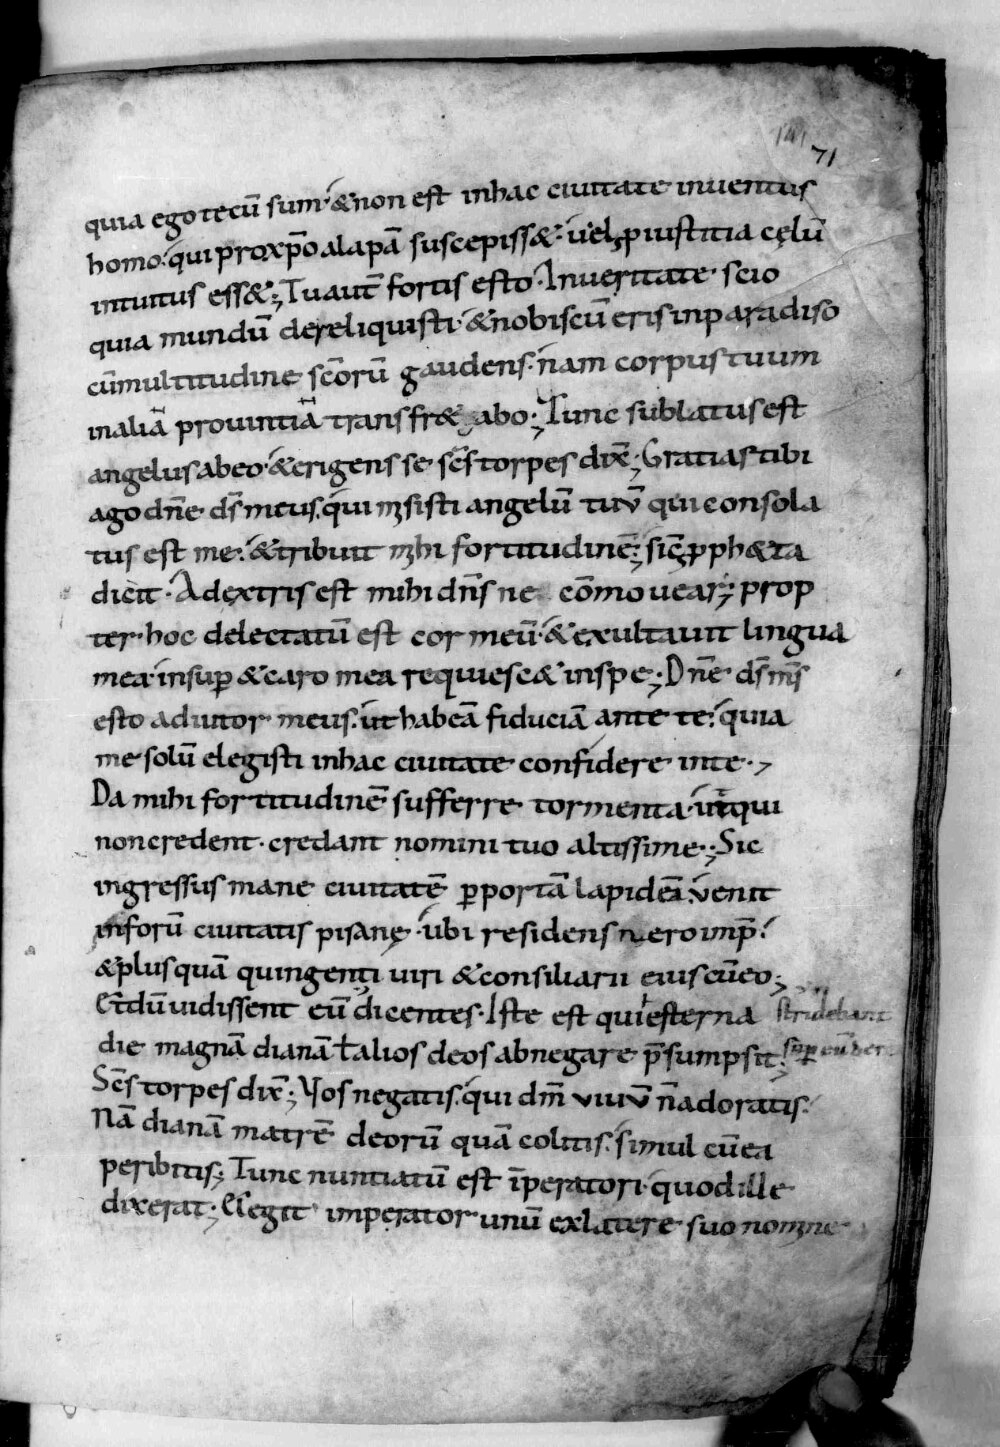 141 71
quia ego tecū sum· & non est inhac ciuitate inuentus
homo· qui pro xp̄o alapā suscepiss&· uel p iustitia cęlū
intuitus ess&; Tu aut̄ fortis esto· Inueritate scio
quia mundū dereliquisti· & nobiscū eris inparadiso
cūmultitudine sc̄orū gaudens· nam corpus tuum
inaliā prouintiā transfr& abo; Tunc sublatus est
angelus abeo· & erigens se sc̄s torpes dix̄; Gratias tibi
ago dn̄e ds̄ meus· qui misisti angelū tuū qui consola
tus est me· & tribuit mihi fortitudinē; sic pph&a
dicit· Adextris est mihi dn̄s ne cōmouear; prop
ter hoc delectatū est cor meū· & exultauit lingua
mea· insup & caro mea requiesc& inspe; Dn̄e ds̄ ms̄
esto adiutor meus· ut habeā fiduciā ante te· quia
me solū elegisti inhac ciuitate confidere inte·
Da mihi fortitudinē sufferre tormenta· ut qui
non credent· credant nomini tuo altissime; Sic
ingressus mane ciuitatē p portā lapideā· uenit
inforū ciuitatis pisanę· ubi residens nero imp̄·
& plusquā quingenti uiri & consiliarii eius cū eo;
Et dū uidissent eū dicentes· Iste est qui esterna stridebant
die magnā dianā t̄ alios deos abnegare p̄sumpsit; sup eū
Sc̄s torpes dix̄; Vos negatis· qui dm̄ uiuū n̄ adoratis·
Nā dianā matrē deorū quā colitis· simul cū ea
peribitis; Tunc nuntiatū est īperatori quod ille
dixerat; Elegit imperator unū exlatere suo nomine